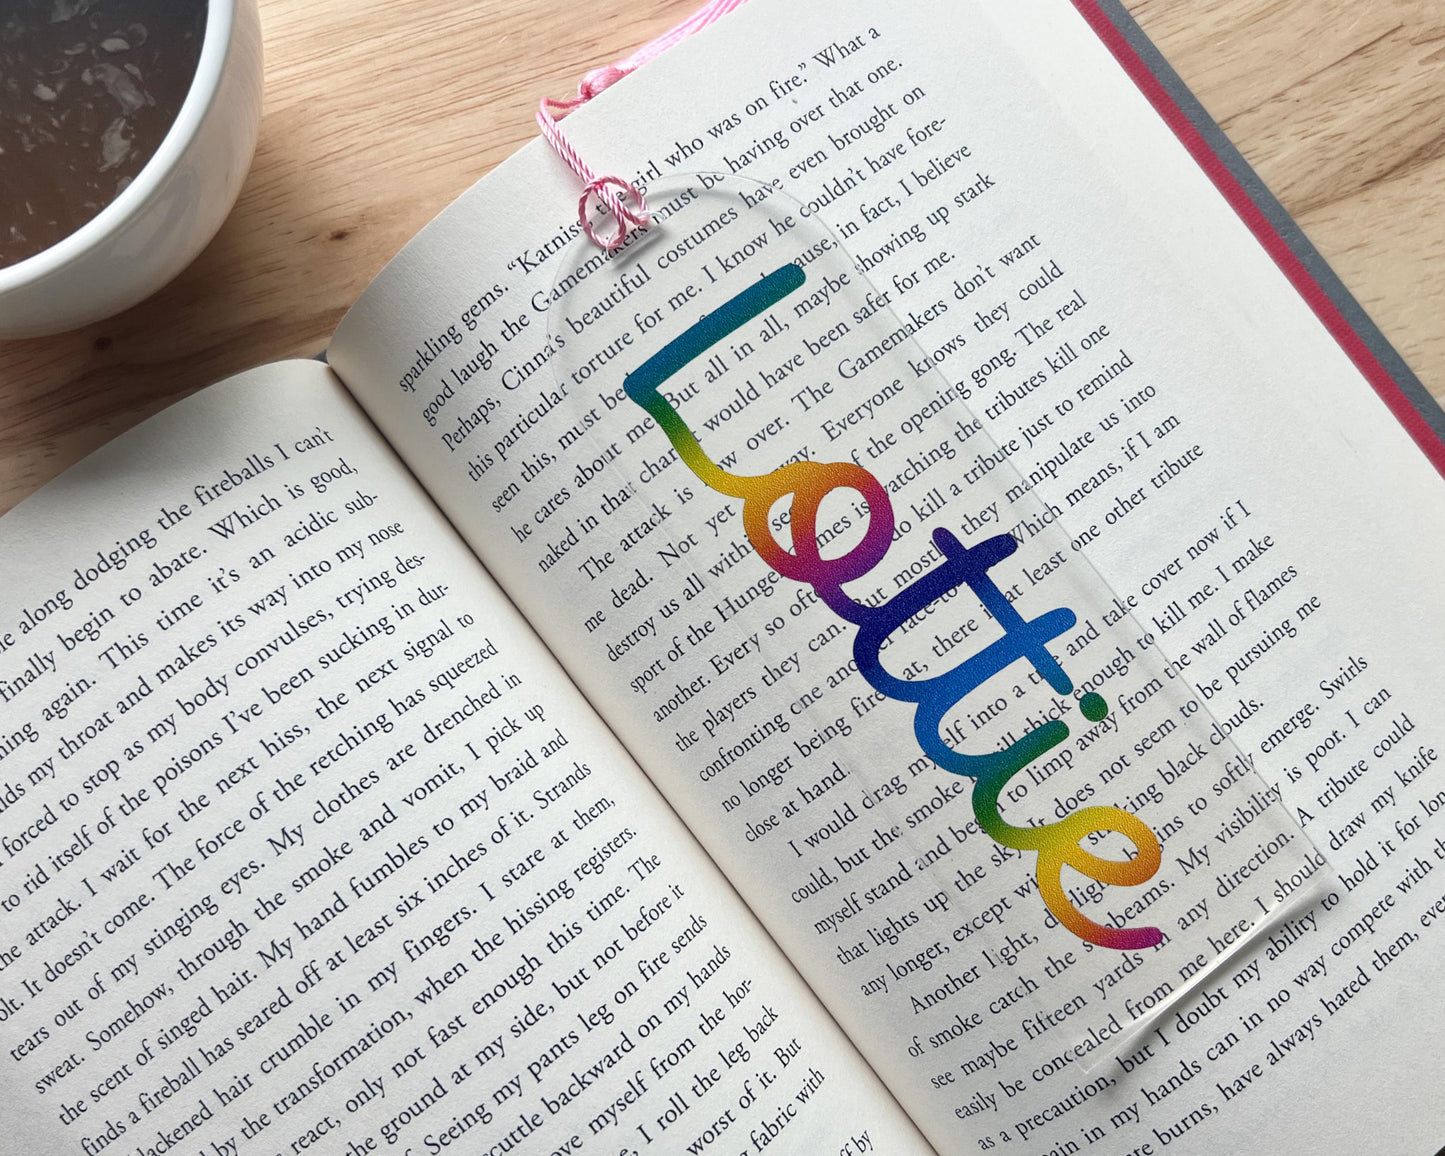 le along dodging the fireballs I can't
finally begin to abate. Which is good,
ning again. This time it's an acidic sub-
lds my throat and makes its way into my nose
forced to stop as my body convulses, trying des-
to rid itself of the poisons I've been sucking in dur-
the attack. I wait for the next hiss, the next signal to
olt. It doesn't come. The force of the retching has squeezed
tears out of my stinging eyes. My clothes are drenched in
sweat. Somehow, through the smoke and vomit, I pick up
the scent of singed hair. My hand fumbles to my braid and
finds a fireball has seared off at least six inches of it. Strands
lackened hair crumble in my fingers. I stare at them,
d by the transformation, when the hissing registers.
react, only not fast enough this time. The
the ground at my side, but not before it
Seeing my pants leg on fire sends
scuttle backward on my hands
ove myself from the hor-
, I roll the leg back
worst of it. But
g fabric with
off by
sparkling gems. "Katniss, the girl who was on fire." What a
good laugh the Gamemakers must be having over that one.
Perhaps, Cinna's beautiful costumes have even brought on
this particular torture for me. I know he couldn't have fore-
seen this, must be cause, in fact, I believe
he cares about me. But all in all, maybe showing up stark
naked in that chariot would have been safer for me.
The attack is now over. The Gamemakers don't want
me dead. Not yet way. Everyone knows they could
destroy us all within se of the opening gong. The real
sport of the Hunger mes is watching the tributes kill one
another. Every so ofte do kill a tribute just to remind
the players they can. But mostly they manipulate us into
confronting one another face-to Which means, if I am
no longer being fired at, there is at least one other tribute
close at hand.
I would drag myself into a tree and take cover now if I
could, but the smoke still thick enough to kill me. I make
myself stand and begin to limp away from the wall of flames
that lights up the sky. It does not seem to be pursuing me
any longer, except w stinking black clouds.
Another light, daylight, begins to softly emerge. Swirls
of smoke catch the sunbeams. My visibility is poor. I can
see maybe fifteen yards in any direction. A tribute could
easily be concealed from me here. I should draw my knife
as a precaution, but I doubt my ability to hold it for lon
ain in my hands can in no way compete with th
burns, have always hated them, eve
Lottie